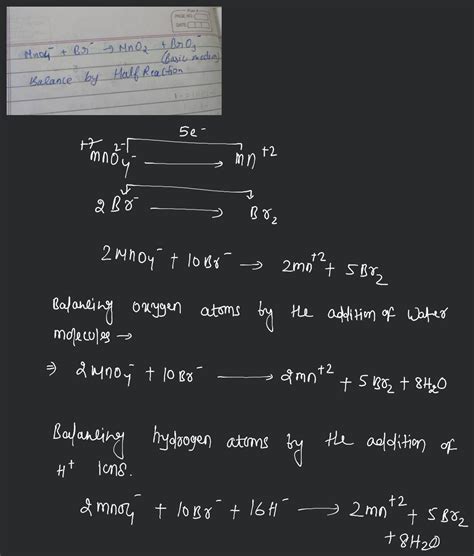 PAGE NO.
DATE
MnO4⁻ + Br⁻ → MnO2 + BrO3⁻
(Basic medium)
Balance by Half Reaction
5e⁻
+7 2-
MnO4⁻ → Mn+2
2Br⁻ → Br2
2MnO4⁻ + 10Br⁻ → 2mn+2 + 5Br2
Balancing oxygen atoms by the addition of water
molecules →
⇒ 2MnO4⁻ + 10Br⁻ → 2mn+2 + 5Br2 + 8H2O
Balancing hydrogen atoms by the addition of
H+ ions.
2mnO4⁻ + 10Br⁻ + 16H⁻ → 2mn+2 + 5Br2
+ 8H2O